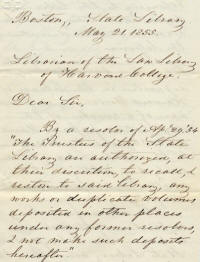 Boston, State Library
May 21. 1855.
Librarian of the Law Library
of Harvard College.
Dear Sir,
By a resolve of Ap. 29, '54
"The Trustees of the State
Library are authorized, at
their discretion, to recall, &
restore to said Library, any
works or duplicate volumes
deposited in other places
under any former resolves,
& not make such deposits
hereafter."